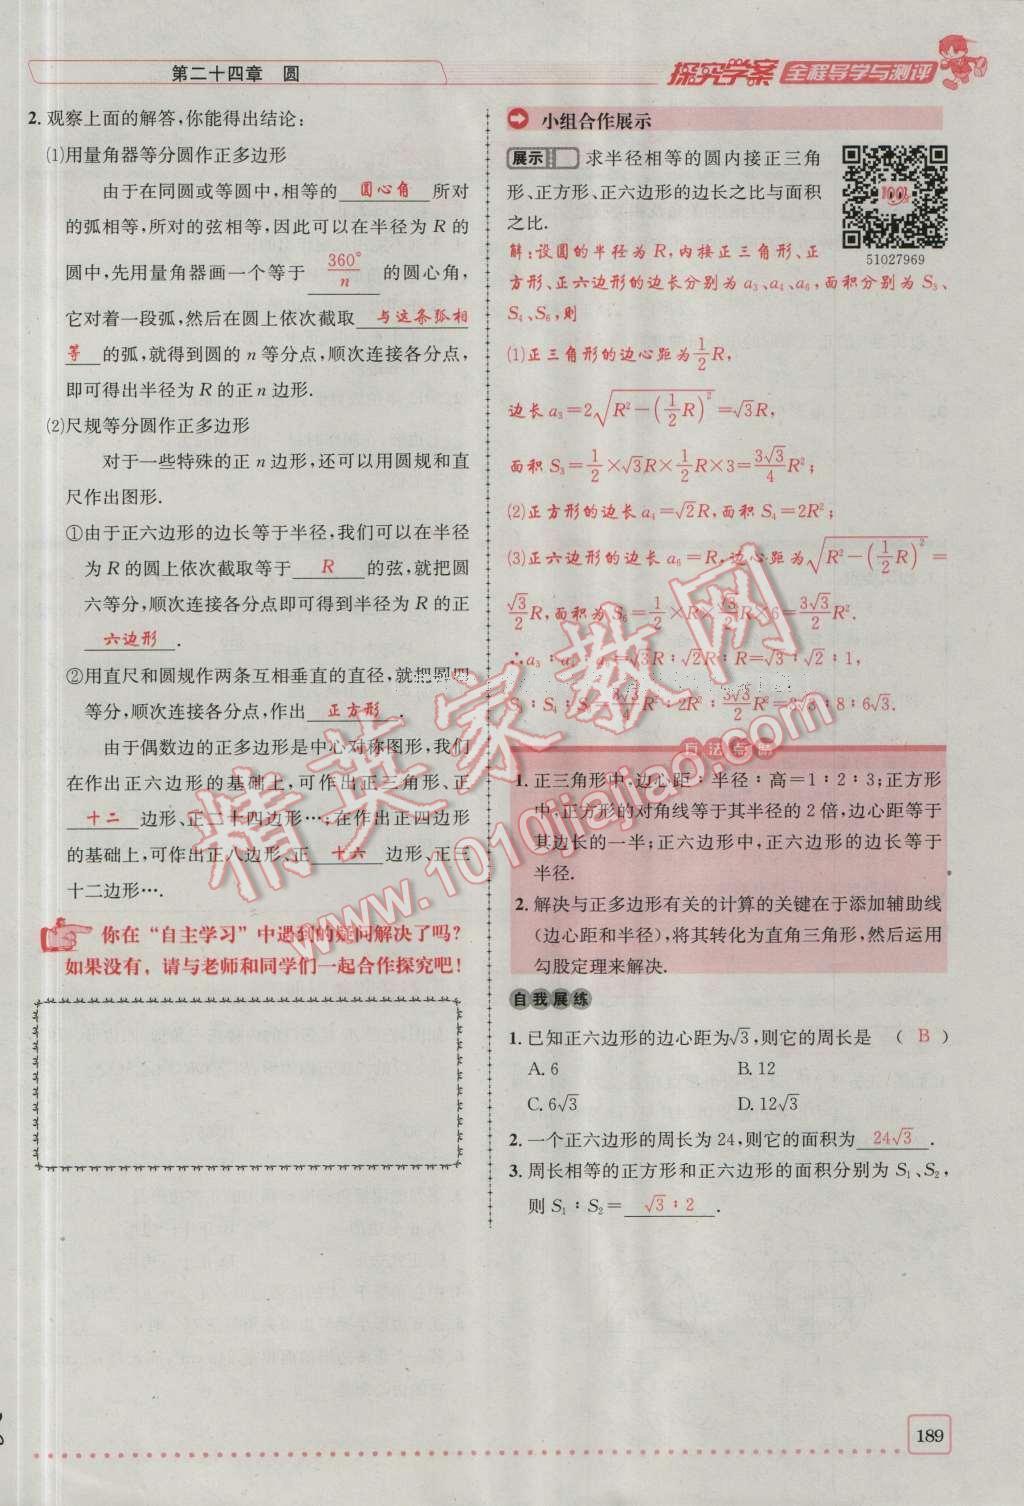 第二十四章 圆
探究学案 全程导学与测评
2. 观察上面的解答,你能得出结论:
(1)用量角器等分圆作正多边形
由于在同圆或等圆中,相等的 圆心角 所对
的弧相等,所对的弦相等,因此可以在半径为 R 的
圆中,先用量角器画一个等于 360°/n 的圆心角,
它对着一段弧,然后在圆上依次截取 与这条弧相
等 的弧,就得到圆的 n 等分点,顺次连接各分点,
即可得出半径为 R 的正 n 边形.
(2)尺规等分圆作正多边形
对于一些特殊的正 n 边形,还可以用圆规和直
尺作出图形.
①由于正六边形的边长等于半径,我们可以在半径
为 R 的圆上依次截取等于 R 的弦,就把圆
六等分,顺次连接各分点即可得到半径为 R 的正
六边形 .
②用直尺和圆规作两条互相垂直的直径,就把圆四
等分,顺次连接各分点,作出 正方形 .
由于偶数边的正多边形是中心对称图形,我们
在作出正六边形的基础上,可作出正三角形、正
十二 边形、正二十四边形…;在作出正四边形
的基础上,可作出正八边形、正 十六 边形、正三
十二边形….
你在“自主学习”中遇到的疑问解决了吗?
如果没有,请与老师和同学们一起合作探究吧!
小组合作展示
展示 求半径相等的圆内接正三角
形、正方形、正六边形的边长之比与面积
之比.
100%
51027969
解:设圆的半径为 R,内接正三角形、正
方形、正六边形的边长分别为 a₃、a₄、a₆,面积分别为 S₃、
S₄、S₆,则
(1)正三角形的边心距为 1/2 R,
边长 a₃=2√(R²-(1/2 R)²)=√3R,
面积 S₃=1/2×√3R×1/2 R×3=3√3/4 R²;
(2)正方形的边长 a₄=√2R,面积 S₄=2R²;
(3)正六边形的边长 a₆=R,边心距为√(R²-(1/2 R)²)=
√3/2 R,面积为 S₆=1/2×R×√3/2 R×6=3√3/2 R².
∴a₃∶a₄∶a₆=√3R∶√2R∶R=√3∶√2∶1,
S₃∶S₄∶S₆=3√3/4 R²∶2R²∶3√3/2 R²=3√3∶8∶6√3.
方法点睛
1. 正三角形中,边心距∶半径∶高=1∶2∶3;正方形
中,正方形的对角线等于其半径的 2 倍,边心距等于
其边长的一半;正六边形中,正六边形的边长等于
半径.
2. 解决与正多边形有关的计算的关键在于添加辅助线
(边心距和半径),将其转化为直角三角形,然后运用
勾股定理来解决.
自我展练
1. 已知正六边形的边心距为√3,则它的周长是 ( B )
A. 6 B. 12
C. 6√3 D. 12√3
2. 一个正六边形的周长为 24,则它的面积为 24√3 .
3. 周长相等的正方形和正六边形的面积分别为 S₁、S₂,
则 S₁∶S₂= √3∶2 .
精英家教网
www.1010jiajiao.com
189